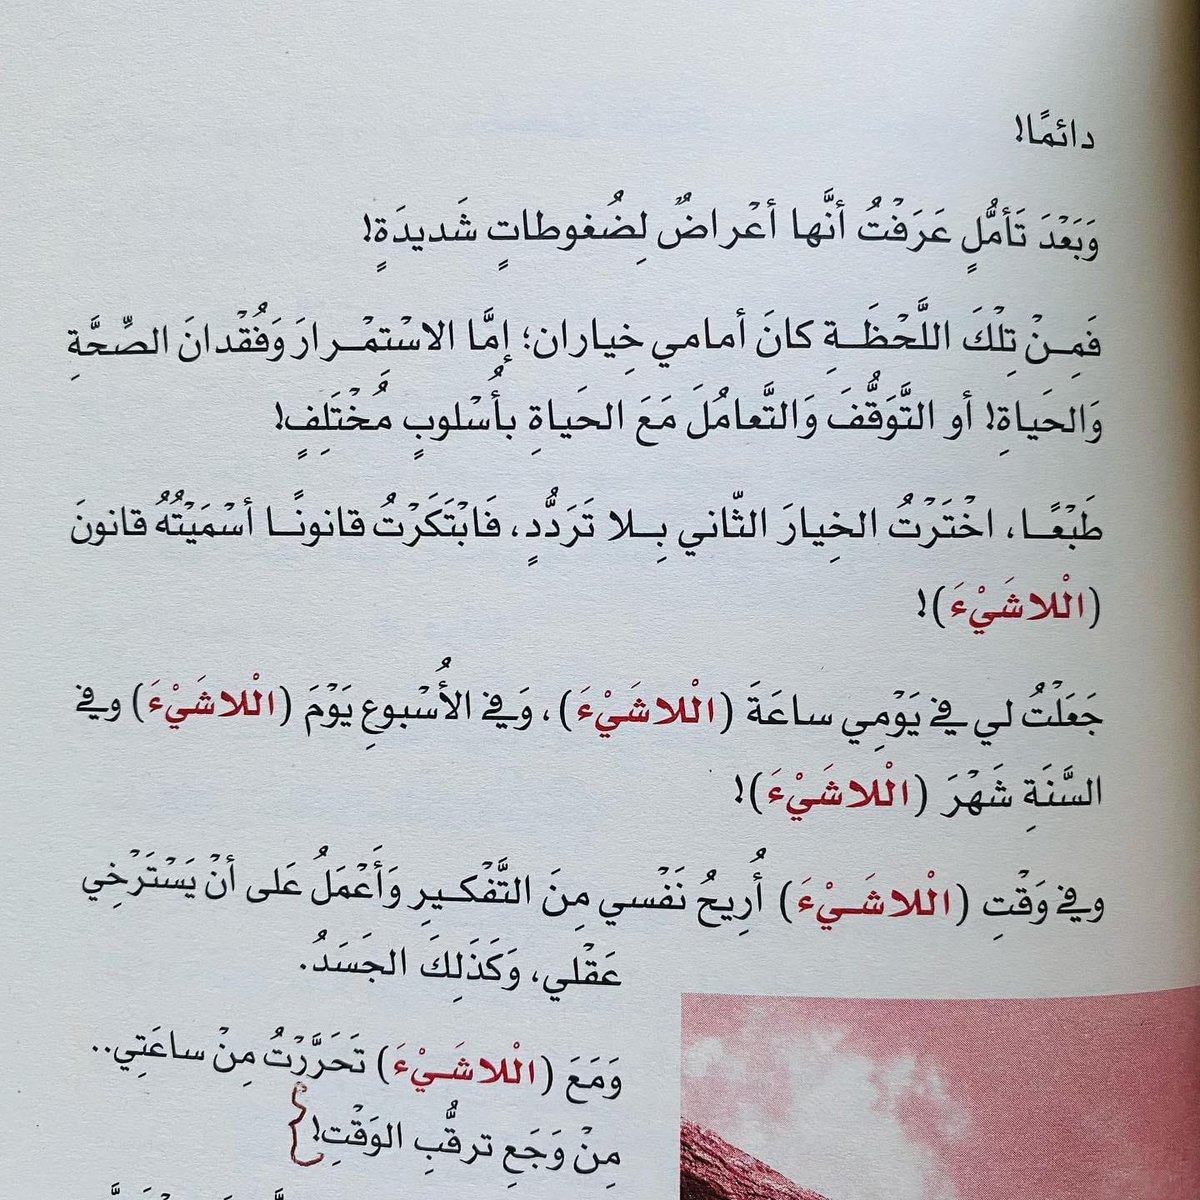 دائمًا!
وَبَعْدَ تَأمُّلٍ عَرَفْتُ أنَّها أعْراضٌ لِضُغوطاتٍ شَديدَةٍ!
فَمِـنْ تِلْكَ اللَّحْظَـةِ كانَ أمامي خِياران؛ إمَّا الاسْتِمْـرارَ وَفُقْدانَ الصِّحَّةِ
وَالحَياةِ! أو التَّوَقُّفَ وَالتَّعامُلَ مَعَ الحَياةِ بأُسْلوبٍ مُخْتَلِفٍ!
طَبْعًـا، اخْتَرْتُ الخِيارَ الثّاني بِـلا تَرَدُّدٍ، فَابْتَكَرْتُ قانونًـا أسْمَيْتُهُ قانونَ
(الْلاشَيْءَ)!
جَعَلْتُ لي في يَوْمِي ساعَةَ (الْلاشَيْءَ)، وَفي الأُسْبوعِ يَوْمَ (الْلاشَيْءَ) وفي
السَّنَةِ شَهْرَ (الْلاشَيْءَ)!
وفي وَقْتِ (الْلاشَـيْءَ) أُرِيحُ نَفْسي مِنَ التَّفْكـيرِ وَأَعْمَلُ عَلى أنْ يَسْتَرْخِي
عَقْلي، وَكَذَلِكَ الجَسَدُ.
وَمَعَ (الْلاشَـيْءَ) تَحَرَّرْتُ مِنْ ساعَتِي..
مِنْ وَجَعِ ترقُّبِ الوَقْتِ!